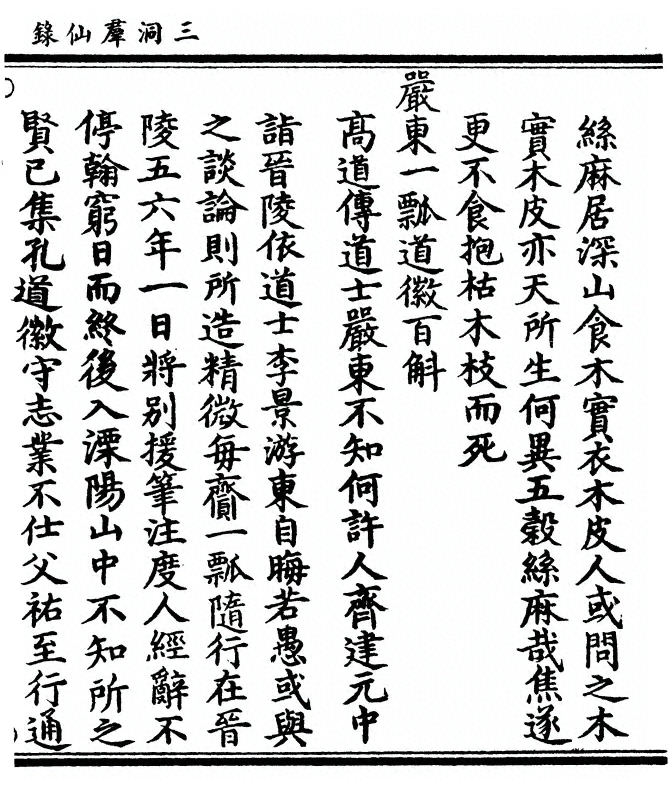 三洞羣仙錄
絲麻居深山食木實衣木皮人或問之木
實木皮亦天所生何異五穀絲麻哉焦遂
更不食抱枯木枝而死
嚴東一瓢道徽百斛
高道傳道士嚴東不知何許人齊建元中
詣晉陵依道士李景游東自晦若愚或與
之談論則所造精微每齎一瓢隨行在晉
陵五六年一日將别援筆注度人經辭不
停翰窮日而終後入溧陽山中不知所之
賢已集孔道徽守志業不仕父祐至行通